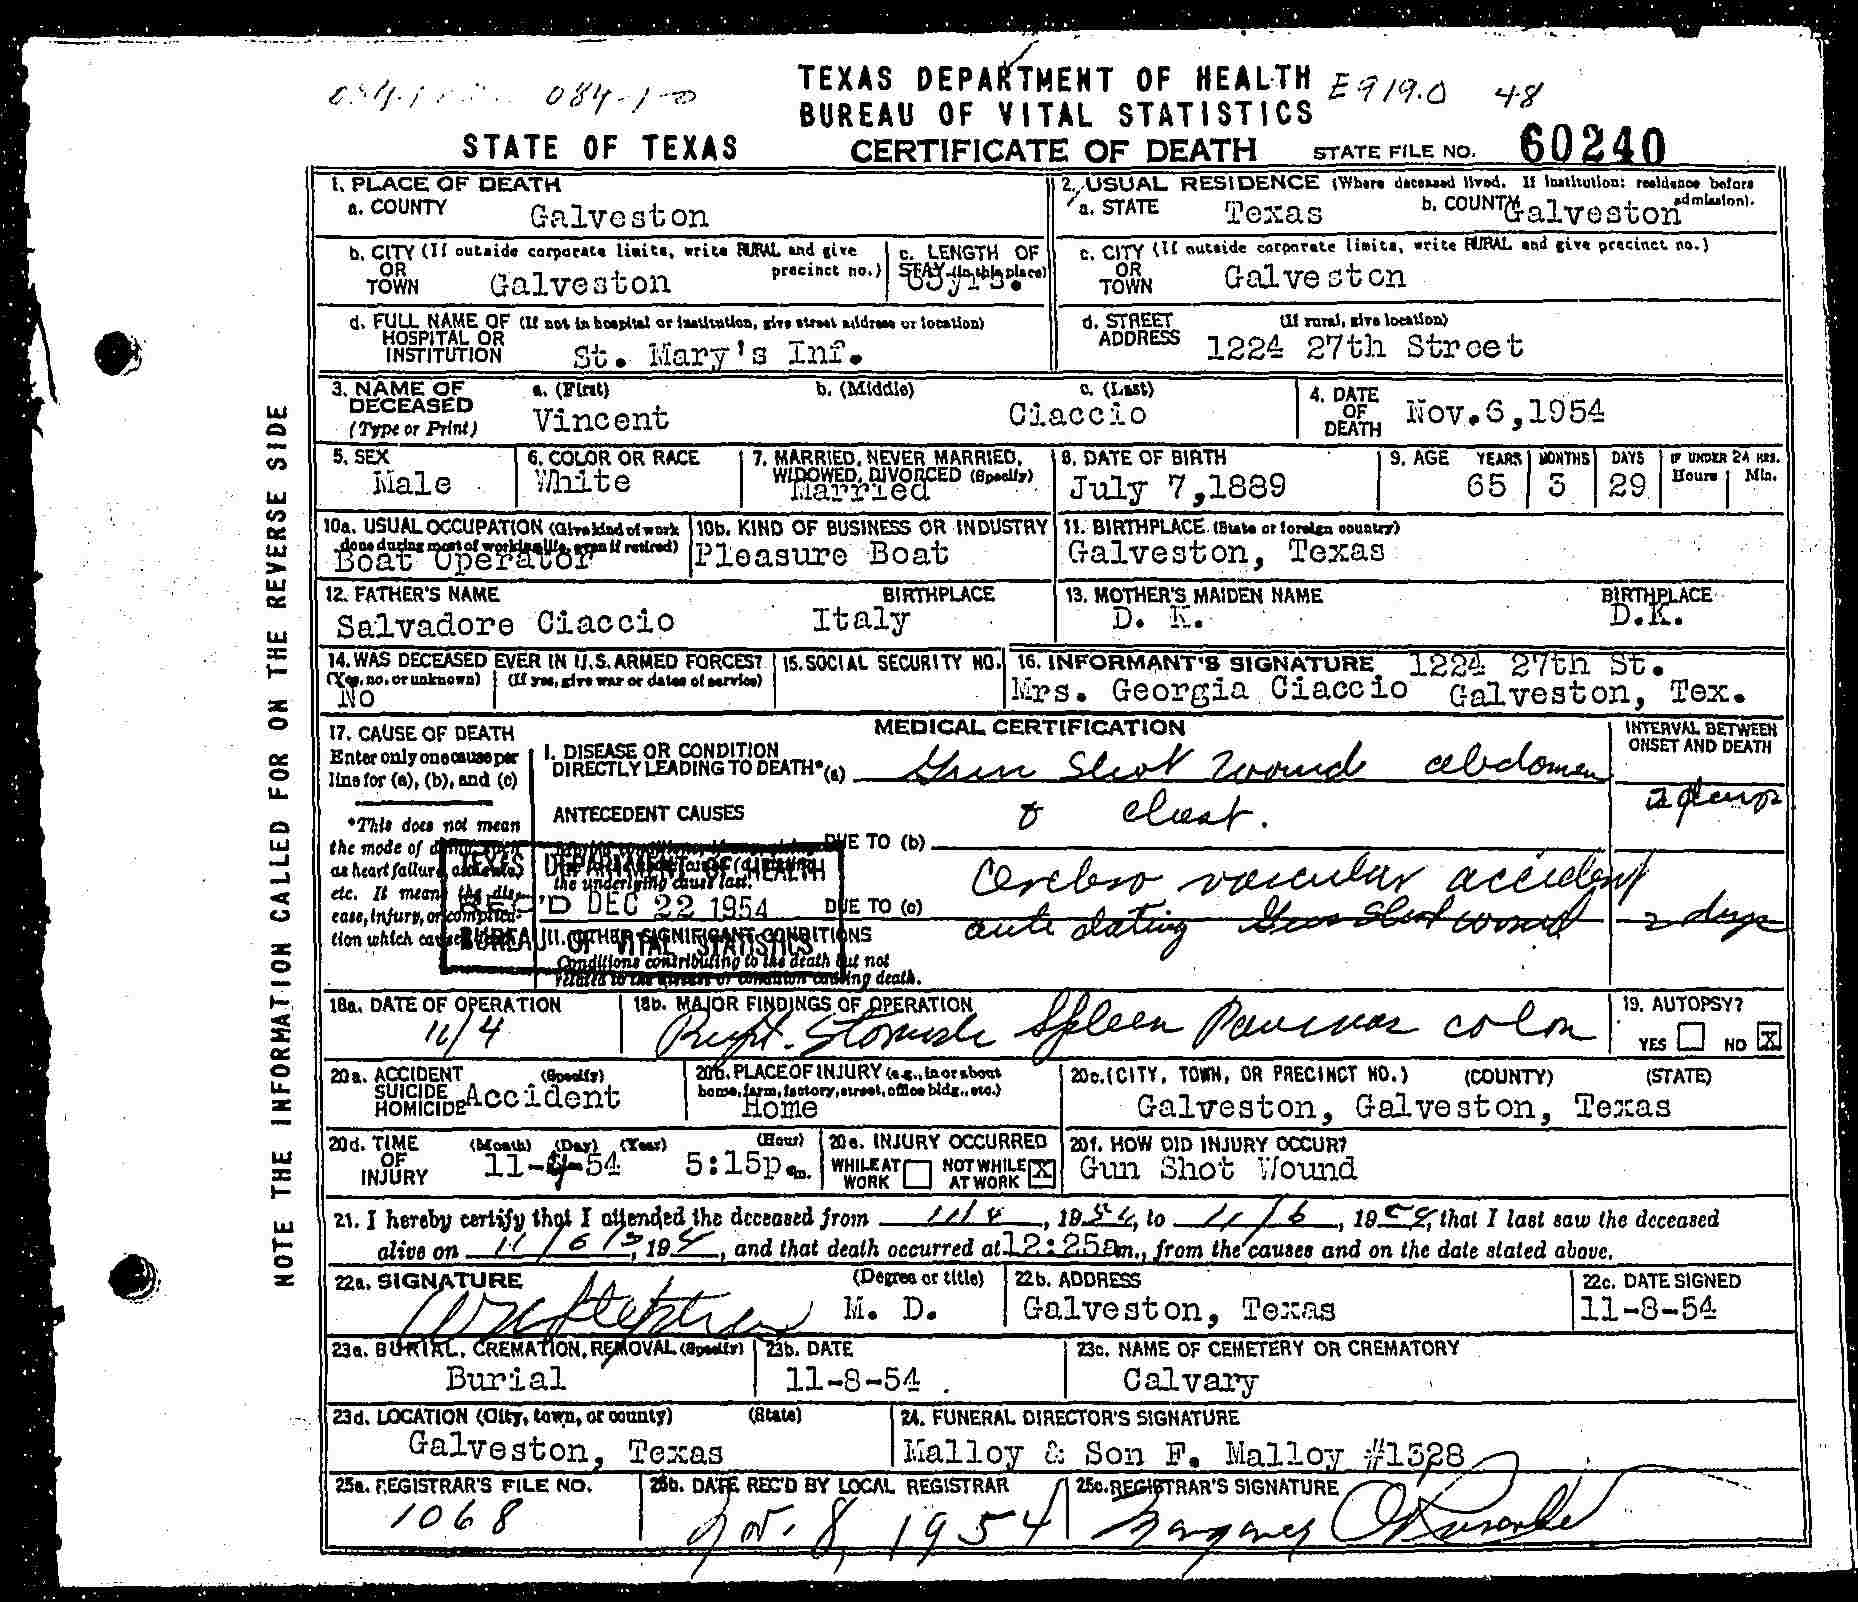 084-1-0
TEXAS DEPARTMENT OF HEALTH E919.0 48
BUREAU OF VITAL STATISTICS
STATE OF TEXAS CERTIFICATE OF DEATH STATE FILE NO. 60240
1. PLACE OF DEATH
a. COUNTY Galveston
2. USUAL RESIDENCE (Where deceased lived. If institution: residence before admission).
a. STATE Texas b. COUNTY Galveston
b. CITY (If outside corporate limits, write RURAL and give precinct no.)
OR
TOWN Galveston
c. LENGTH OF
STAY (in this place)
65yrs.
c. CITY (If outside corporate limits, write RURAL and give precinct no.)
OR
TOWN Galveston
d. FULL NAME OF (If not in hospital or institution, give street address or location)
HOSPITAL OR
INSTITUTION St. Mary's Inf.
d. STREET (If rural, give location)
ADDRESS 1224 27th Street
3. NAME OF DECEASED (Type or Print)
a. (First) b. (Middle) c. (Last)
Vincent Ciaccio
4. DATE OF DEATH Nov.6,1954
5. SEX
Male
6. COLOR OR RACE
White
7. MARRIED, NEVER MARRIED,
WIDOWED, DIVORCED (Specify)
Married
8. DATE OF BIRTH
July 7,1889
9. AGE YEARS MONTHS DAYS IF UNDER 24 HRS.
Hours Min.
65 3 29
10a. USUAL OCCUPATION (Give kind of work
done during most of working life, even if retired)
Boat Operator
10b. KIND OF BUSINESS OR INDUSTRY
Pleasure Boat
11. BIRTHPLACE (State or foreign country)
Galveston, Texas
12. FATHER'S NAME BIRTHPLACE
Salvadore Ciaccio Italy
13. MOTHER'S MAIDEN NAME BIRTHPLACE
D. K. D.K.
14. WAS DECEASED EVER IN U.S. ARMED FORCES?
(Yes, no, or unknown) (If yes, give war or dates of service)
No
15. SOCIAL SECURITY NO.
16. INFORMANT'S SIGNATURE 1224 27th St.
Mrs. Georgia Ciaccio Galveston, Tex.
17. CAUSE OF DEATH
Enter only one cause per
line for (a), (b), and (c)
*This does not mean
the mode of dying, such
as heart failure, asthenia,
etc. It means the dis-
ease, injury, or complica-
tion which caused
MEDICAL CERTIFICATION
INTERVAL BETWEEN
ONSET AND DEATH
I. DISEASE OR CONDITION
DIRECTLY LEADING TO DEATH* (a) Gun Shot Wound abdomen
& chest. 2 days
ANTECEDENT CAUSES
DUE TO (b)
the underlying cause last.
DUE TO (c)
Cerebro vascular accident
ante dating Gun Shot wound 2 days
II. OTHER SIGNIFICANT CONDITIONS
Conditions contributing to the death but not
related to the disease or condition causing death.
TEXAS DEPARTMENT OF HEALTH
REC'D DEC 22 1954
BUREAU OF VITAL STATISTICS
18a. DATE OF OPERATION
11/4
18b. MAJOR FINDINGS OF OPERATION
Rupt. Stomach Spleen Pancreas colon
19. AUTOPSY?
YES NO X
20a. ACCIDENT (Specify)
SUICIDE
HOMICIDE Accident
20b. PLACE OF INJURY (e.g., in or about
home, farm, factory, street, office bldg., etc.)
Home
20c. (CITY, TOWN, OR PRECINCT NO.) (COUNTY) (STATE)
Galveston, Galveston, Texas
20d. TIME OF INJURY (Month) (Day) (Year) (Hour)
11-4-54 5:15p m.
20e. INJURY OCCURRED
WHILE AT WORK NOT WHILE AT WORK X
20f. HOW DID INJURY OCCUR?
Gun Shot Wound
21. I hereby certify that I attended the deceased from 11/4, 1954, to 11/6, 1954, that I last saw the deceased
alive on 11/6/5, 194, and that death occurred at 12:25am., from the causes and on the date stated above.
22a. SIGNATURE (Degree or title)
M. D.
22b. ADDRESS
Galveston, Texas
22c. DATE SIGNED
11-8-54
23a. BURIAL, CREMATION, REMOVAL (Specify)
Burial
23b. DATE
11-8-54
23c. NAME OF CEMETERY OR CREMATORY
Calvary
23d. LOCATION (City, town, or county) (State)
Galveston, Texas
24. FUNERAL DIRECTOR'S SIGNATURE
Malloy & Son F. Malloy #1328
25a. REGISTRAR'S FILE NO.
1068
25b. DATE REC'D BY LOCAL REGISTRAR
Nov. 8, 1954
25c. REGISTRAR'S SIGNATURE
NOTE THE INFORMATION CALLED FOR ON THE REVERSE SIDE